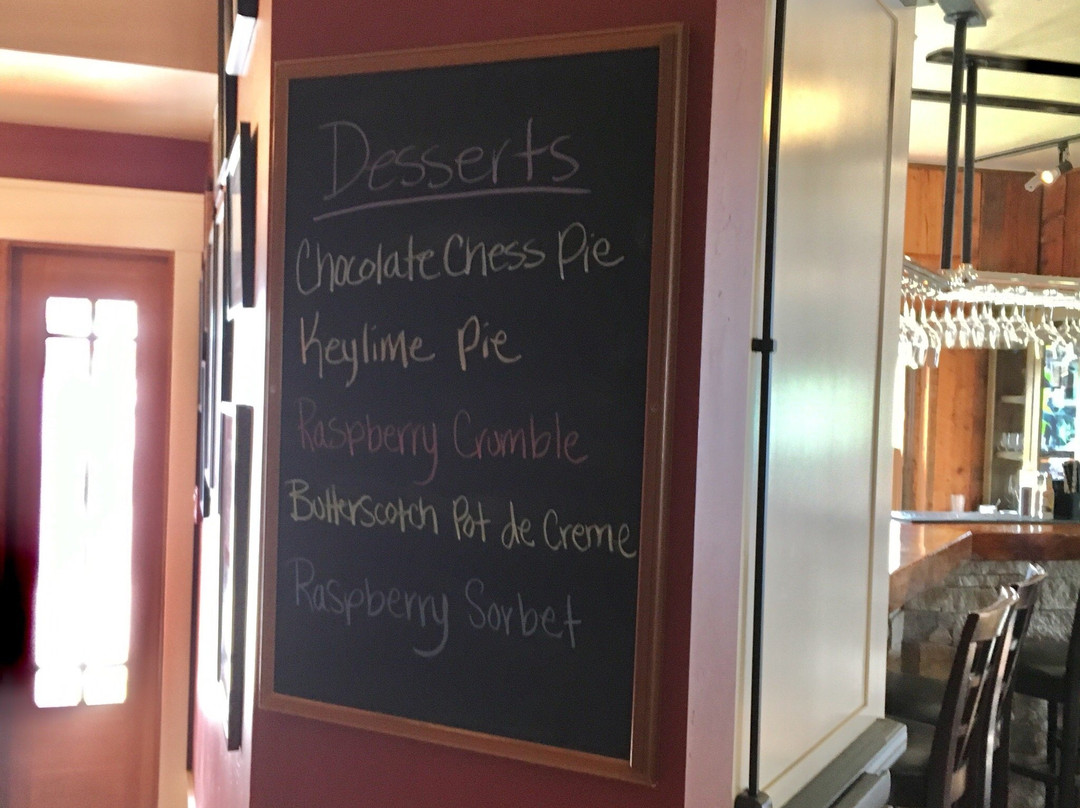 Desserts
Chocolate Chess Pie
Keylime Pie
Raspberry Crumble
Butterscotch Pot de Creme
Raspberry Sorbet